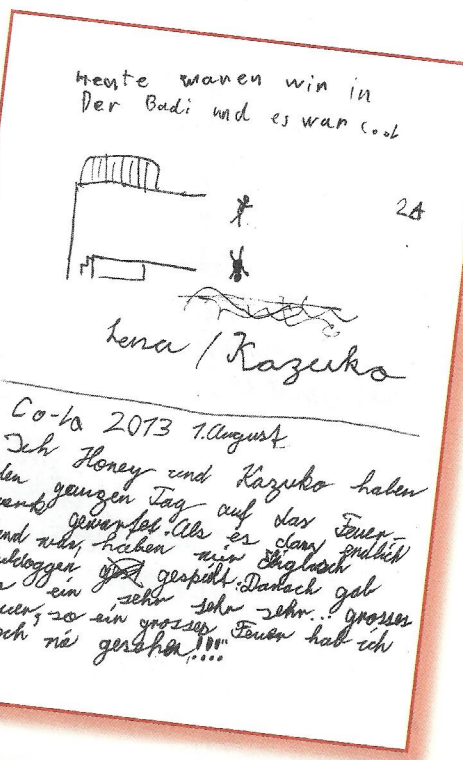 Heute waren wir in
Der Badi und es war cool
2A
Lena / Kazuko
Co-La 2013 1. August
Ich Honey und Kazuko haben
den ganzen Tag auf das Feuer-
werk gewartet. Als es dann endlich
haben wir
gespielt. Danach gab
ein sehr sehr sehr... grosses
so ein grosses Feuer hab ich
och nie gesehen!!!